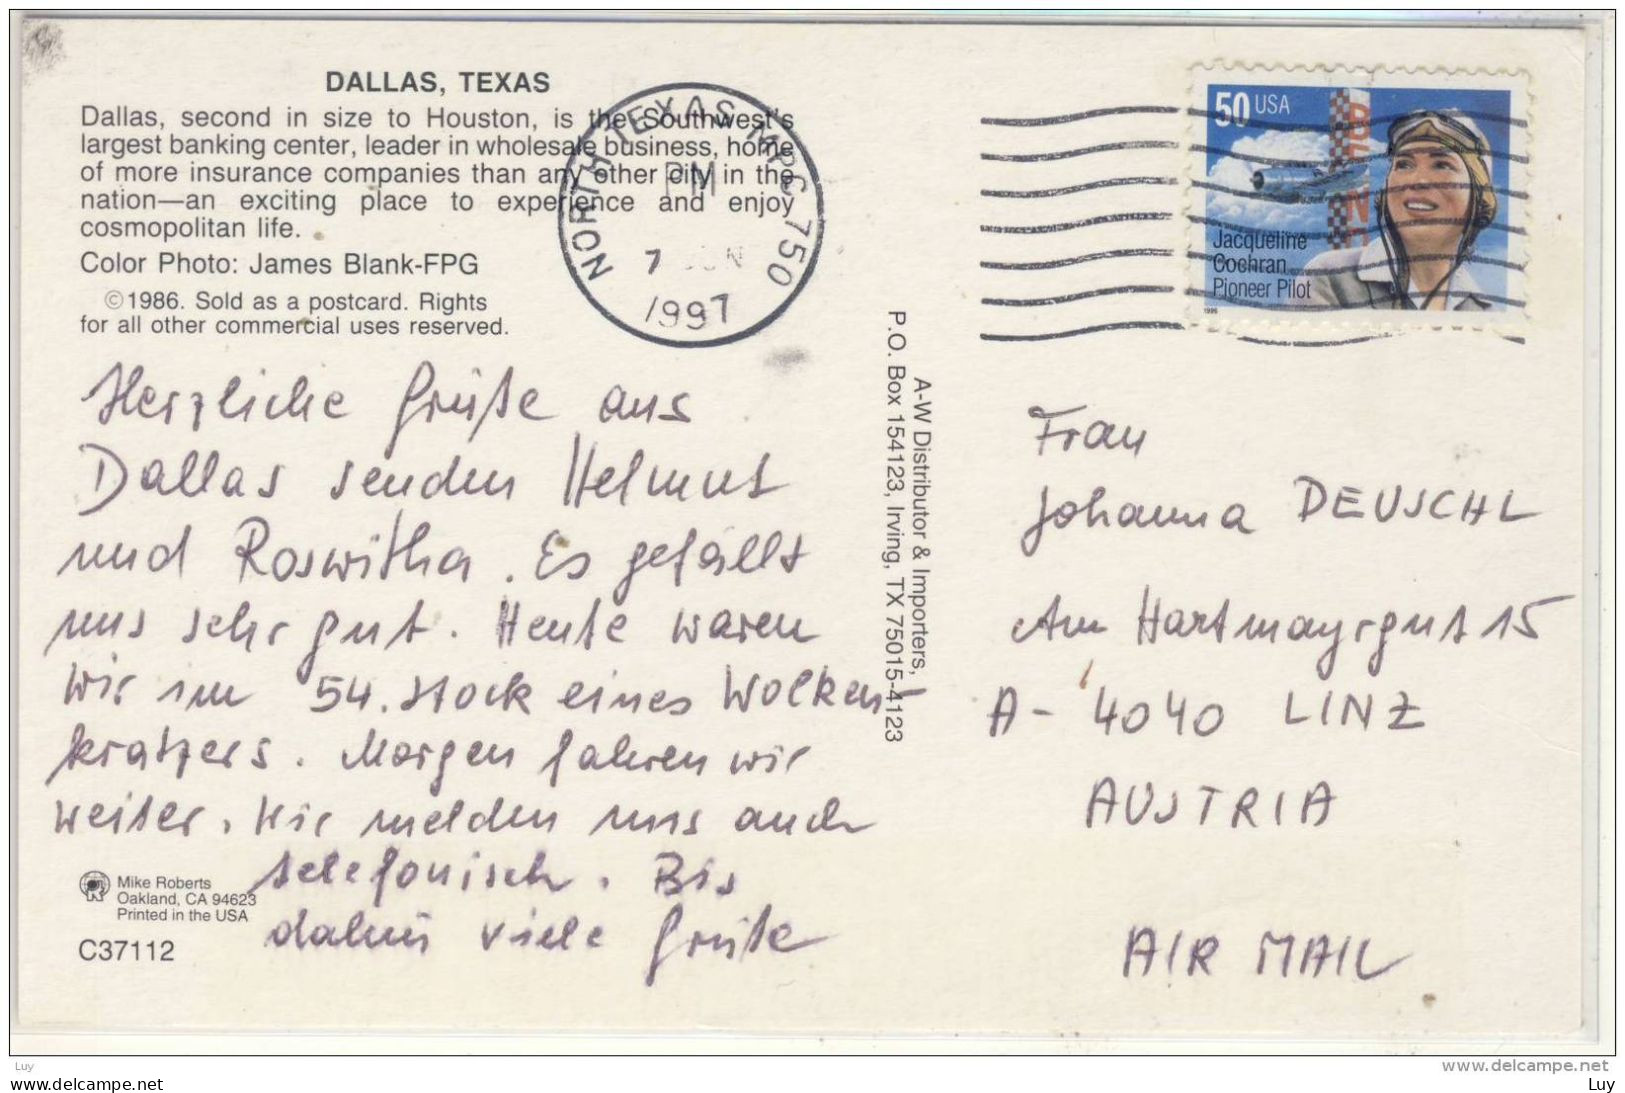 DALLAS, TEXAS
Dallas, second in size to Houston, is the Southwest's
largest banking center, leader in wholesale business, home
of more insurance companies than any other city in the
nation—an exciting place to experience and enjoy
cosmopolitan life.
Color Photo: James Blank-FPG
©1986. Sold as a postcard. Rights
for all other commercial uses reserved.
NORTH TEXAS MPC 750
PM
7
1997
50 USA
Jacqueline
Cochran
Pioneer Pilot
1996
Herzliche Grüße aus
Dallas senden Helmut
und Roswitha. Es gefällt
uns sehr gut. Heute waren
wir im 54. Stock eines Wolken-
kratzers. Morgen fahren wir
weiter. Wir melden uns auch
telefonisch. Bis
dahin viele Grüße
Mike Roberts
Oakland, CA 94623
Printed in the USA
C37112
A-W Distributor & Importers,
P.O. Box 154123, Irving, TX 75015-4123
Frau
Johanna DEUSCHL
Am Hartmayrgut 15
A- 4040 LINZ
AUSTRIA
AIR MAIL
Luy
www.delcampe.net
Luy
www.delcampe.net
Luy